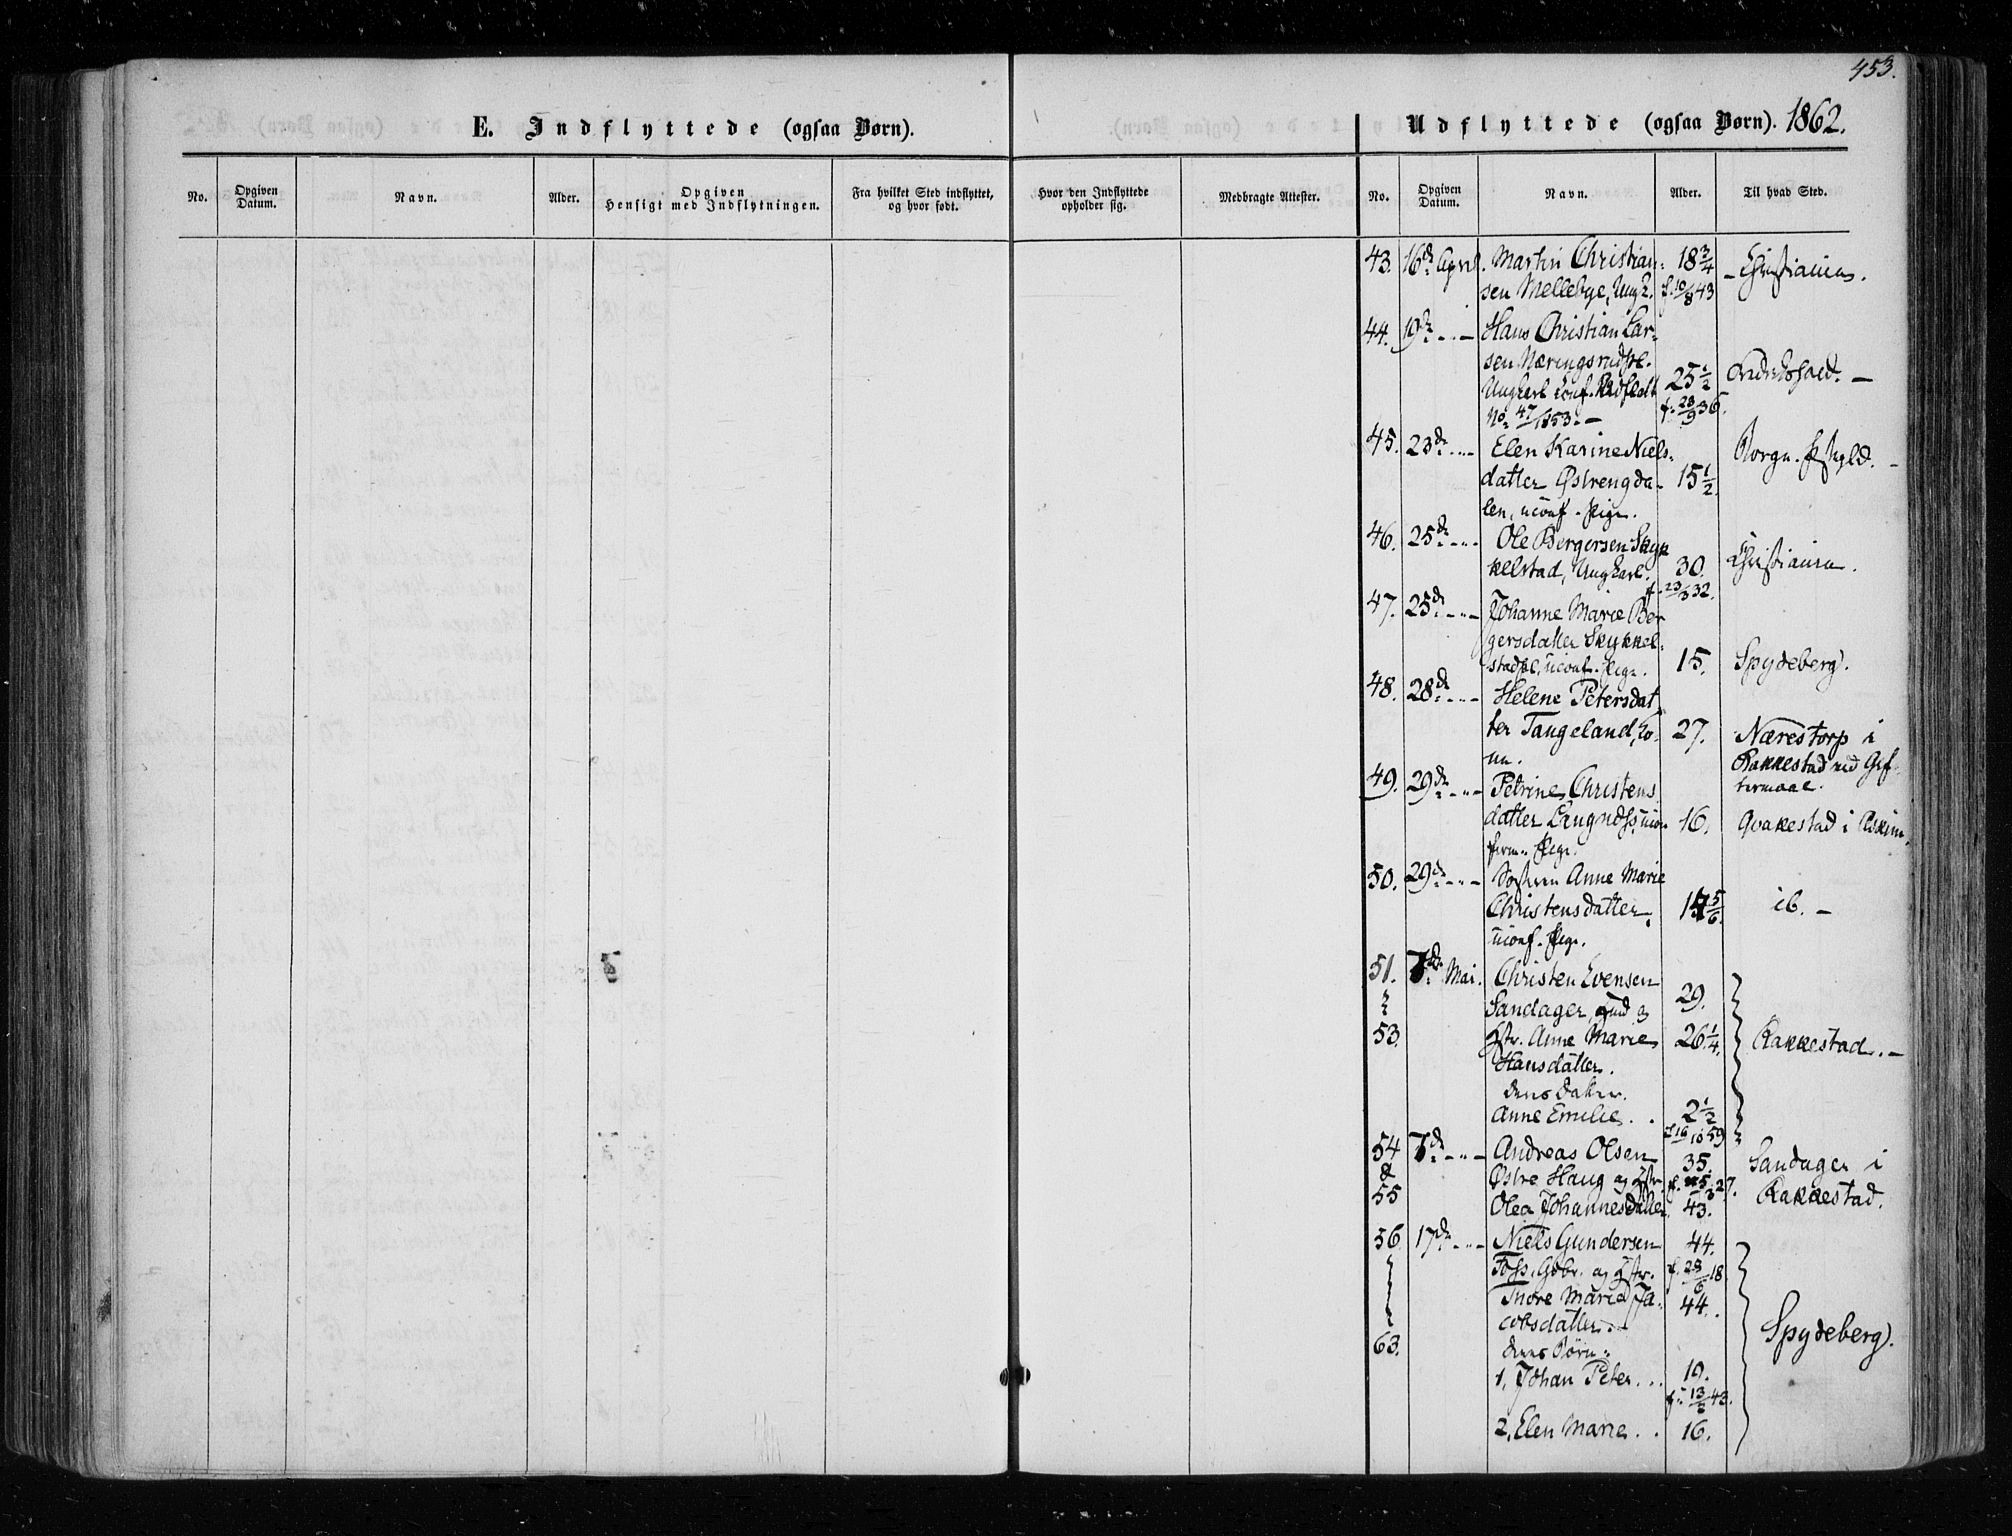 453.
E. Indflyttede (ogsaa Børn).
Udflyttede (ogsaa Børn). 1862.
No.
Opgiven Datum.
Navn.
Alder.
Opgiven Hensigt med Indflytningen.
Fra hvilket Sted indflyttet, og hvor født.
Hvor den Indflyttede opholder sig.
Medbragte Attester.
No.
Opgiven Datum.
Navn.
Alder.
Til hvad Sted.
43. 16de April. Martin Christian- 18 3/4 Christiania.
sen Mellebye, Ungk. f. 10/8 43
44. 19de - - Hans Christian Lar-
sen Næringsrud
Ungkarl 25 1/2
No. 47/1853. - f. 23/9 36.
45. 23de - - Elen Karine Niels- Borge
datter Østrengda- 15 1/2
len, uconf. Pige.
46. 25de - - Ole Bergersen Skyk
kelstad, Ungkarl. 30. Christiania.
f. 23/3 32.
47. 25de - - Johanne Marie Ber
gersdatter Skykkel-
uconf. Pige. 15. Spydeberg.
48. 28de - - Helene Petersdat
ter Tangeland, Ko- 27. Nærestorp i
ne. Rakkestad ved Gif-
49. 29de - - Petrine Christens termaal.
datter ucon 16. Qvakestad i Askim.
firm. Pige.
50. 29de - - Søsteren Anne Marie
Christensdatter, 14 5/6 ib. -
uconf. Pige.
51. 7de Mai. Christen Evensen
Sandager, og 29.
53. Hstr. Anne Marie 26 1/4. Rakkestad. -
Hansdatter.
deres Datter
Anne Emilie . . 2 1/2
f. 16/10 59
54 7de - - Andreas Olsen 35. Sandager i
& Østre Haug og Hstr. f. 27. Rakkestad.
55 Olea Johannesdatter 43.
56 17de - - Niels Gundersen 44.
Foss, Gbr. og Hstr. f. 23/6 18.
Thore Marie Ja- 44.
cobsdatter Spydeberg.
63. deres Børn
1. Johan Peter . . 19.
f. 13/2 43.
2. Elen Marie . . 16.